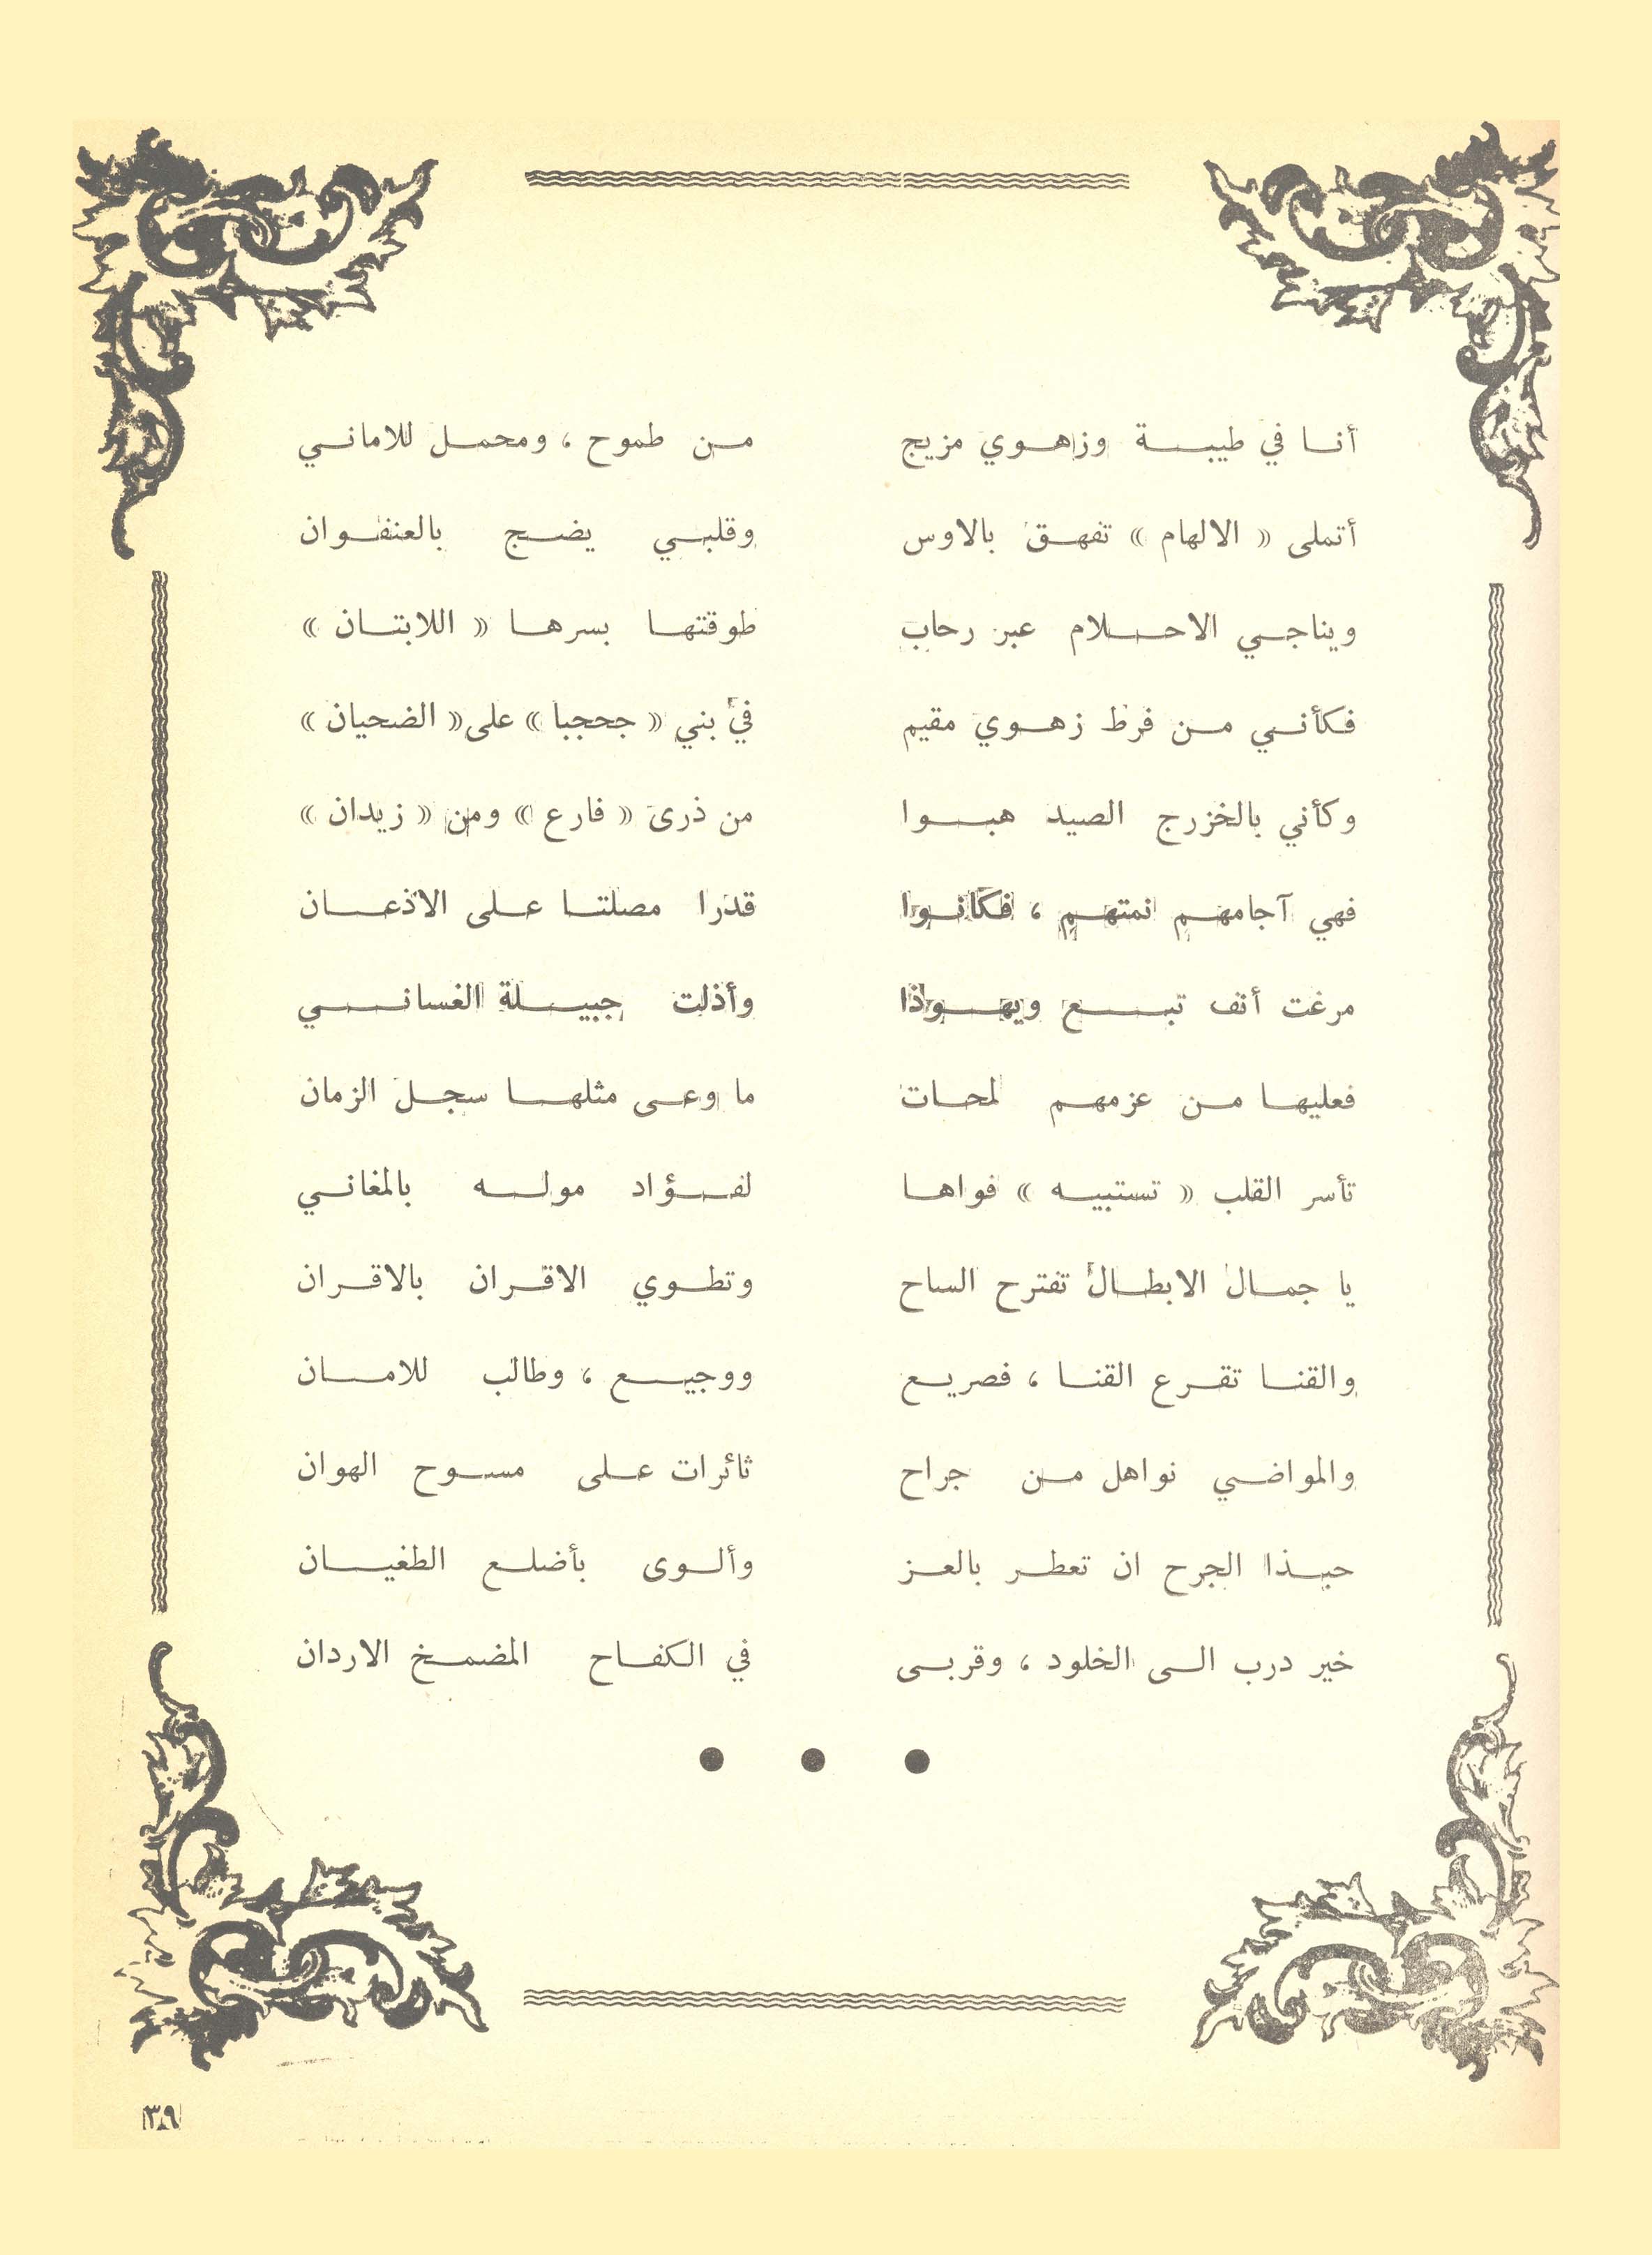 أنا في طيبة وزاهوي مزيج من طموح ، ومحمل للاماني
أتملى « الالهام » تفهق بالاوس وقلبي يضج بالعنفوان
ويناجي الاحلام عبر رحاب طوقتها بسرها « اللابتان »
فكأني من فرط زهوي مقيم في بني « جحجبا » على « الضحيان »
وكأني بالخزرج الصيد هبوا من ذرى « فارع » ومن « زيدان »
فهي آجامهم نمتهم ، فكانوا قدرا مصلتا على الاذعان
مرغت أنف تبع ويهوذا وأذلت جبيلة الغساني
فعليها من عزمهم لمحات ما وعى مثلها سجل الزمان
تأسر القلب « تستبيه » فواها لفؤاد موله بالمغاني
يا جمال الابطال تفترح الساح وتطوي الاقران بالاقران
والقنا تقرع القنا ، فصريع ووجيع ، وطالب للامان
والمواضي نواهل من جراح ثائرات على مسوح الهوان
حبذا الجرح ان تعطر بالعز وألوى بأضلع الطغيان
خير درب الى الخلود ، وقربى في الكفاح المضمخ الاردان
٣٩